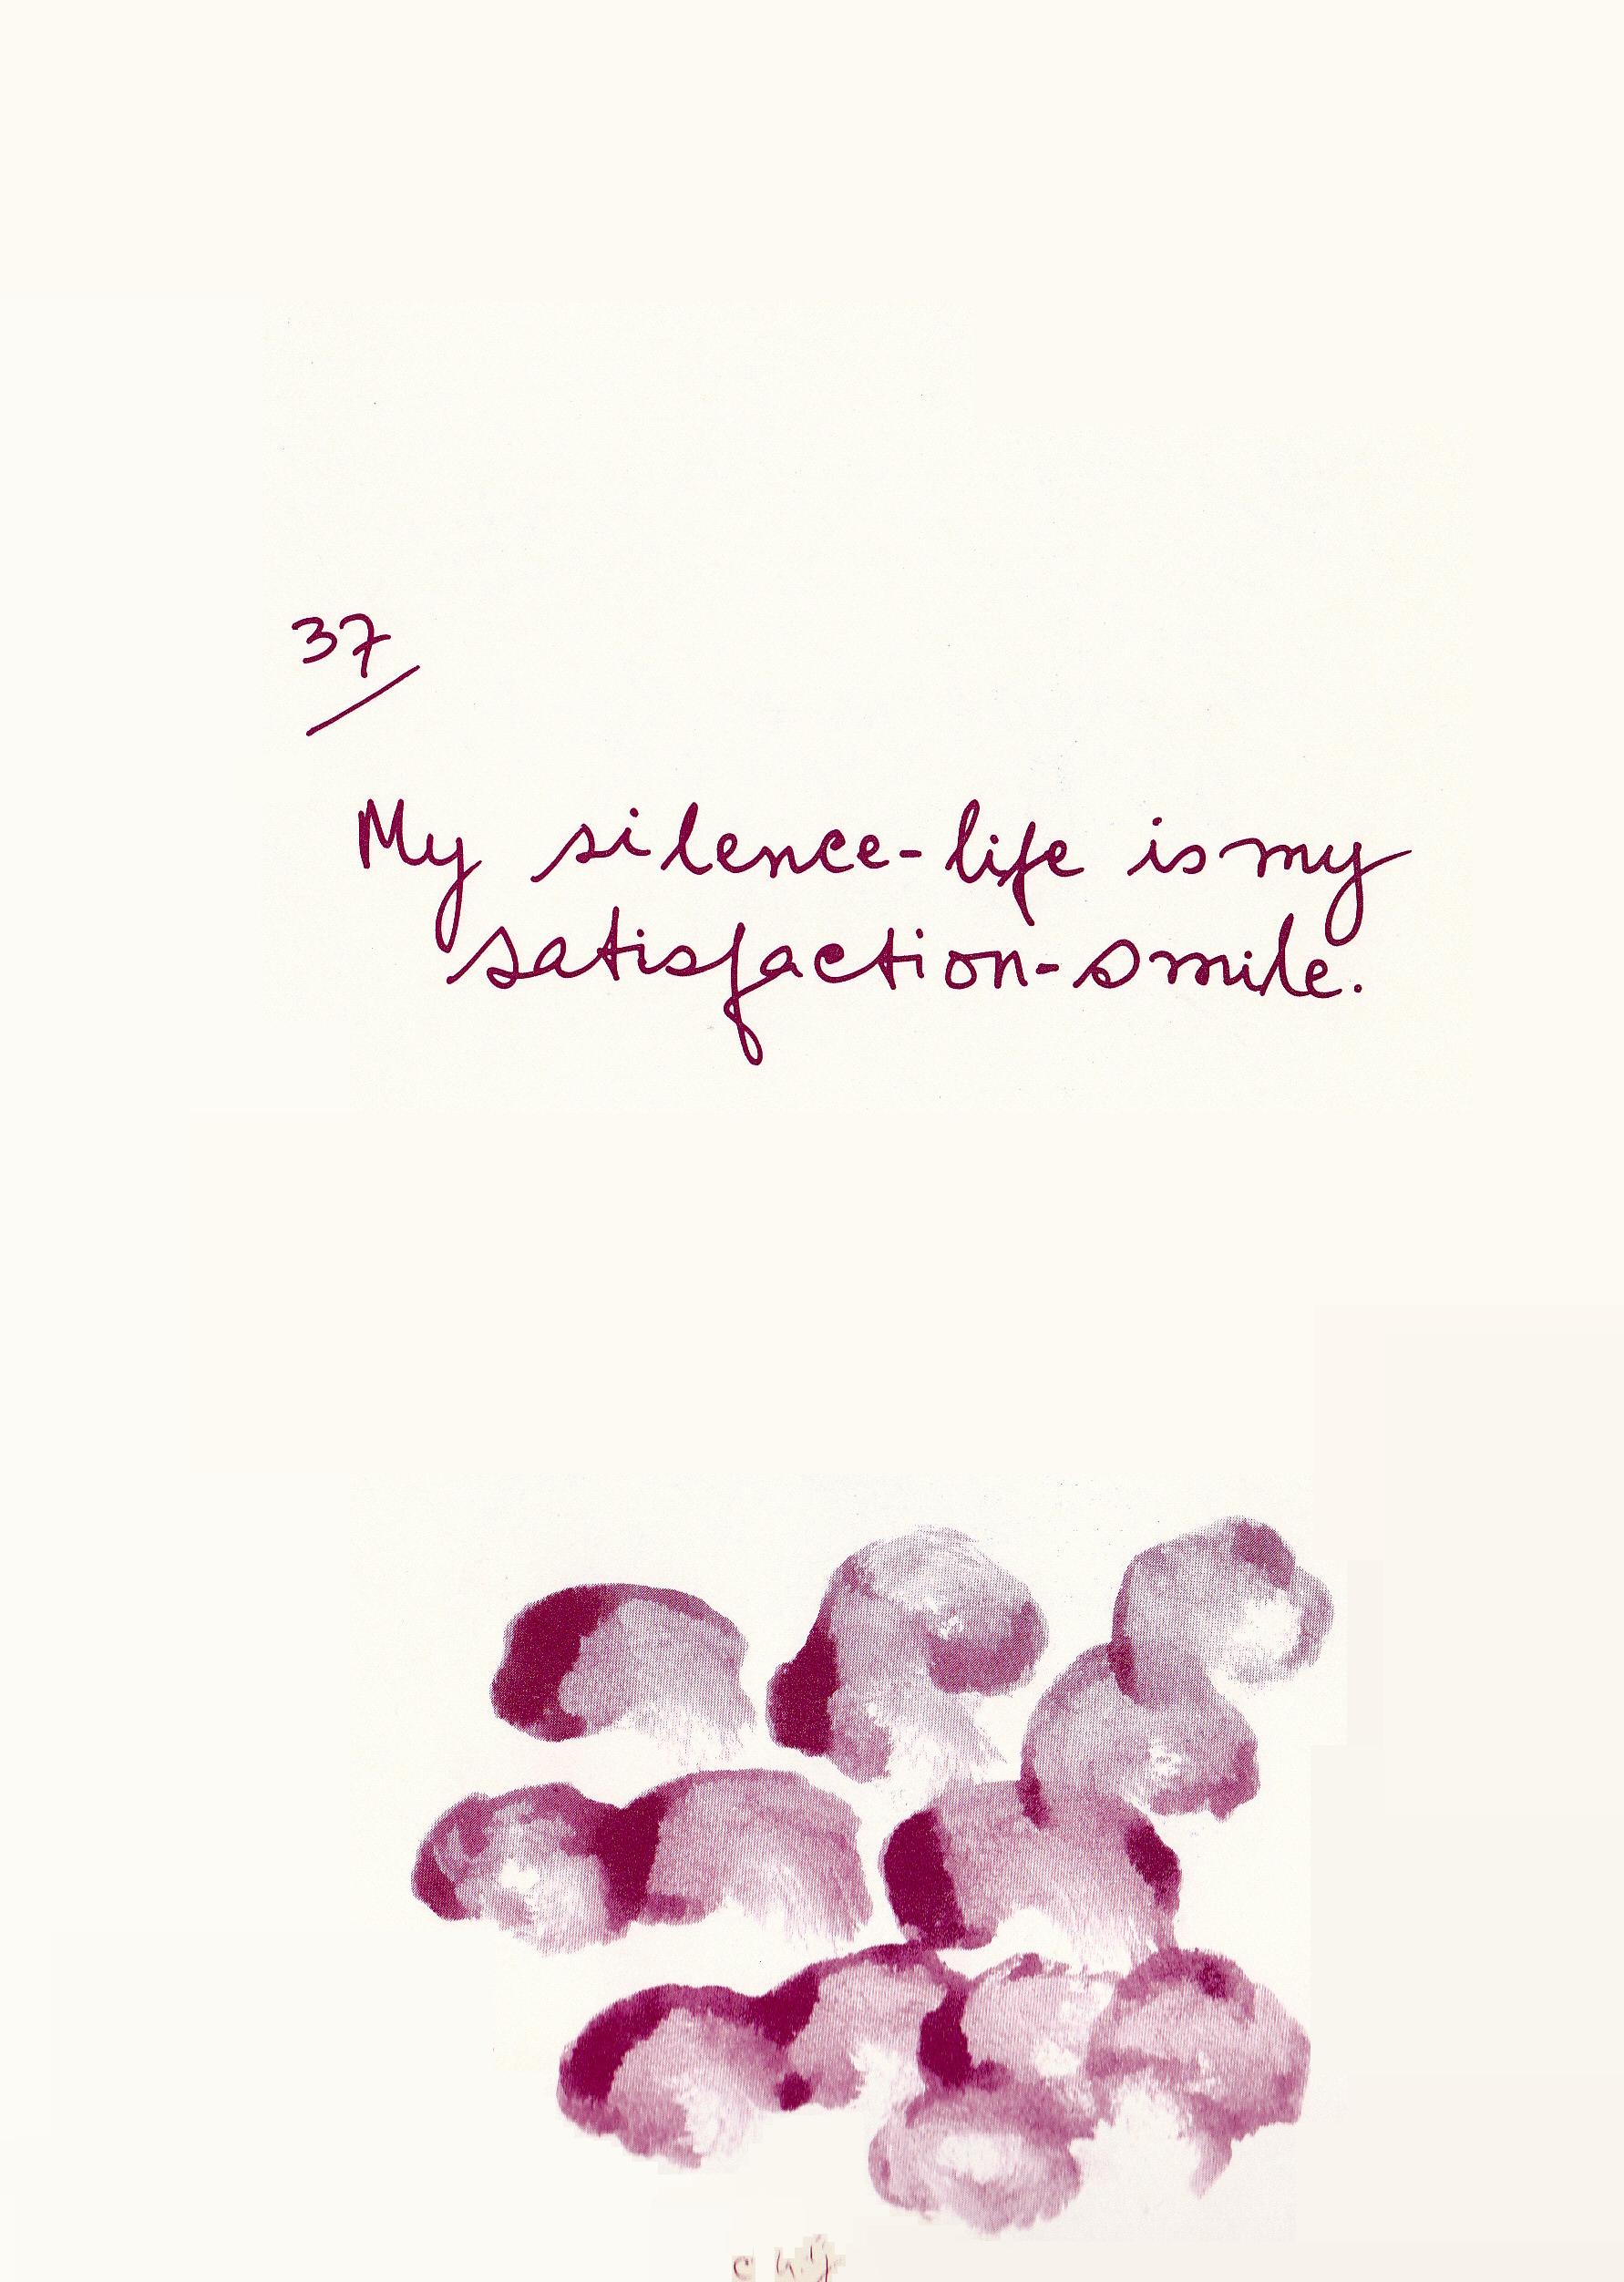 37
My silence-life is my
satisfaction-smile.